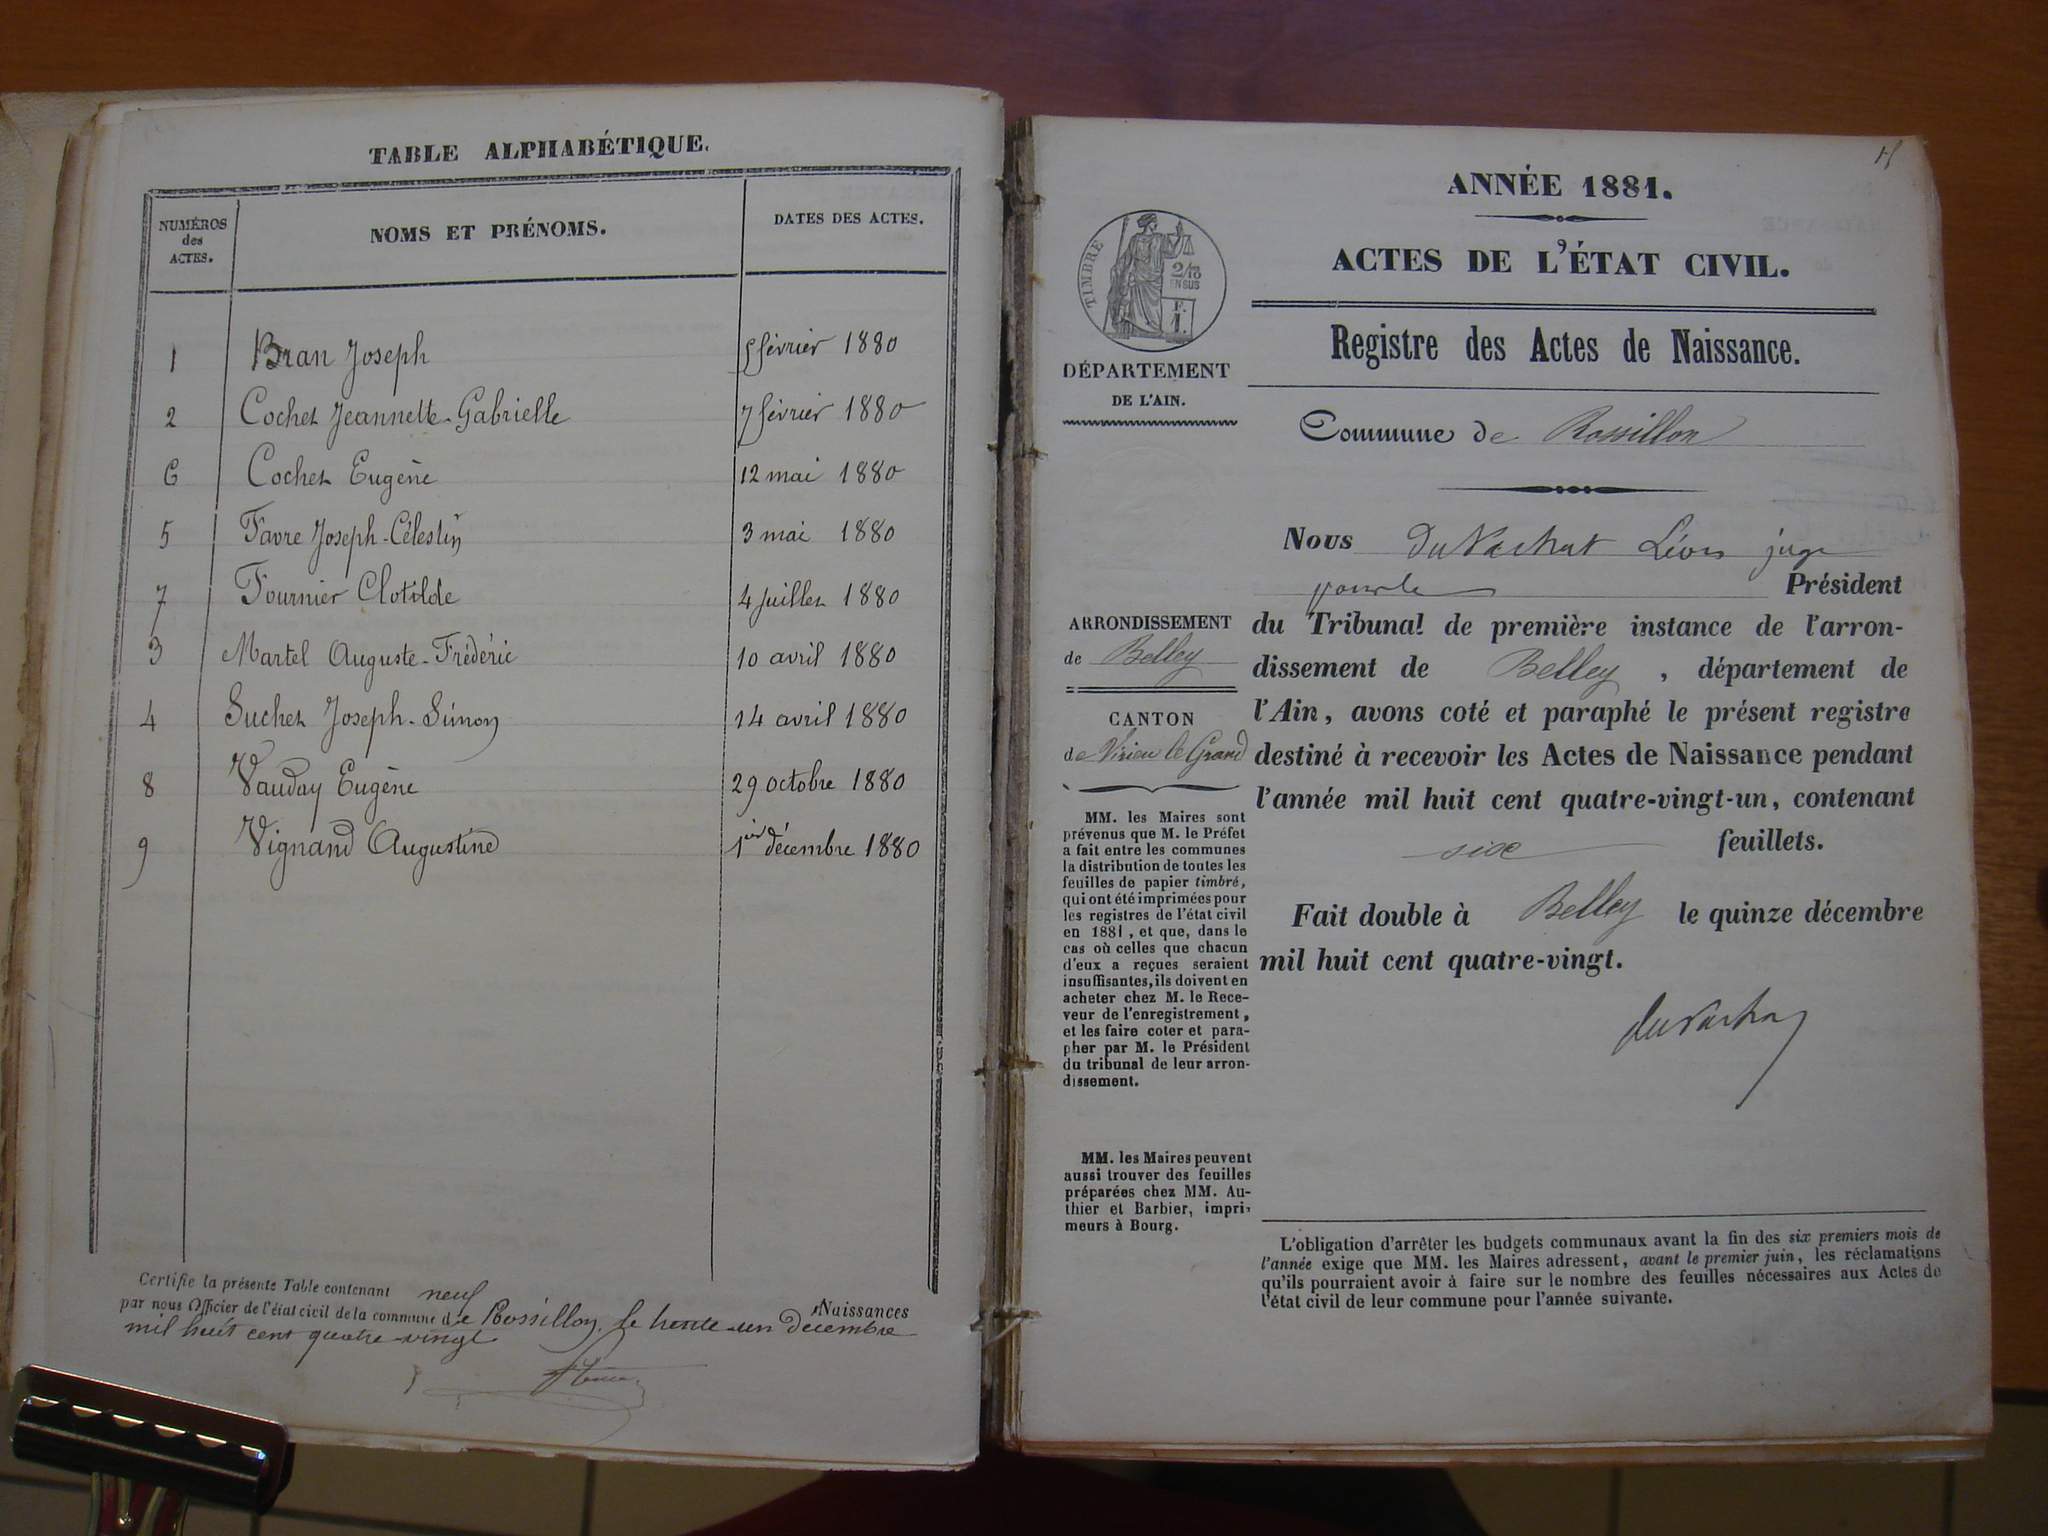 TABLE ALPHABÉTIQUE.
NUMÉROS des ACTES.
NOMS ET PRÉNOMS.
DATES DES ACTES.
1 Bran Joseph 5 février 1880
2 Cochet Jeannette-Gabrielle 7 février 1880
6 Cochet Eugène 12 mai 1880
5 Favre Joseph-Célestin 3 mai 1880
7 Fournier Clotilde 4 juillet 1880
3 Martel Auguste-Frédéric 10 avril 1880
4 Suchet Joseph-Simon 14 avril 1880
8 Vauday Eugène 29 octobre 1880
9 Vignand Augustine 1er décembre 1880
Certifie la présente Table contenant neuf Naissances
par nous Officier de l'état civil de la commune de Rossillon, le trente-un décembre
mil huit cent quatre-vingt
ANNÉE 1881.
ACTES DE L'ÉTAT CIVIL.
Registre des Actes de Naissance.
TIMBRE
2/10
EN SUS
F.
1.
DÉPARTEMENT
DE L'AIN.
Commune de Rossillon
Nous DuVachat Léon juge
pour le Président
du Tribunal de première instance de l'arron-
dissement de Belley, département de
l'Ain, avons coté et paraphé le présent registre
destiné à recevoir les Actes de Naissance pendant
l'année mil huit cent quatre-vingt-un, contenant
six feuillets.
Fait double à Belley le quinze décembre
mil huit cent quatre-vingt.
duVachat
ARRONDISSEMENT
de Belley
CANTON
de Virieu le Grand
MM. les Maires sont
prévenus que M. le Préfet
a fait entre les communes
la distribution de toutes les
feuilles de papier timbré,
qui ont été imprimées pour
les registres de l'état civil
en 1881, et que, dans le
cas où celles que chacun
d'eux a reçues seraient
insuffisantes, ils doivent en
acheter chez M. le Rece-
veur de l'enregistrement,
et les faire coter et para-
pher par M. le Président
du tribunal de leur arron-
dissement.
MM. les Maires peuvent
aussi trouver des feuilles
préparées chez MM. Au-
thier et Barbier, impri-
meurs à Bourg.
L'obligation d'arrêter les budgets communaux avant la fin des six premiers mois de
l'année exige que MM. les Maires adressent, avant le premier juin, les réclamations
qu'ils pourraient avoir à faire sur le nombre des feuilles nécessaires aux Actes de
l'état civil de leur commune pour l'année suivante.